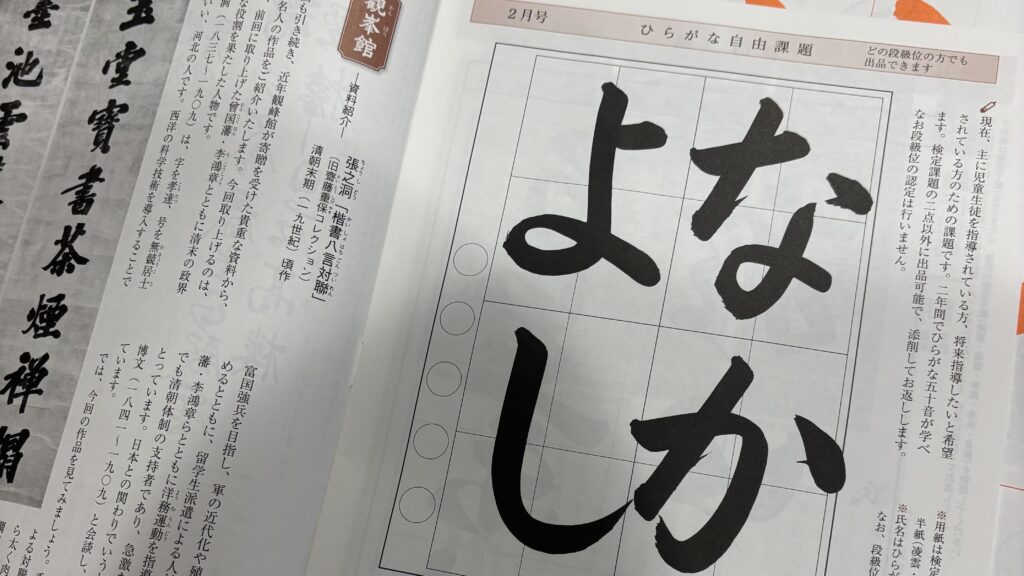 2月号
ひらがな自由課題
どの段級位の方でも
出品できます
現在、主に児童生徒を指導されている方、将来指導したいと希望
されている方のための課題です。二年間でひらがな五十音が学べ
ます。検定課題の二点以外に出品可能で、添削してお返しします。
なお段級位の認定は行いません。
※用紙は検定
半紙(凌雲・
※氏名はひらが
なお、段級位
なか
よし
観峯館
―資料紹介―
張之洞「楷書八言対聯」
(旧齋藤重保コレクション)
清朝末期(一九世紀)頃作
も引き続き、近年観峰館が寄贈を受けた貴重な資料から、
名人の作品をご紹介いたします。今回取り上げるのは、
前回に取り上げた曾国藩・李鴻章とともに清末の政界
な役割を果たした人物です。
洞(一八三七〜一九〇九)は、字を孝達、号を無競居士
いい、河北の人です。西洋の科学技術を導入することで
富国強兵を目指し、軍の近代化や殖
めるとともに、留学生派遣による人
藩・李鴻章らとともに洋務運動を指導
でも清朝体制の支持者であり、急激な
とっています。日本との関わりでいうと
博文(一八四一〜一九〇九)と会談し、
ています。
では、今回の作品を見てみましょう。
よる対聯
らた太く、肉
玉堂寶書茶煙禅榻
池雲